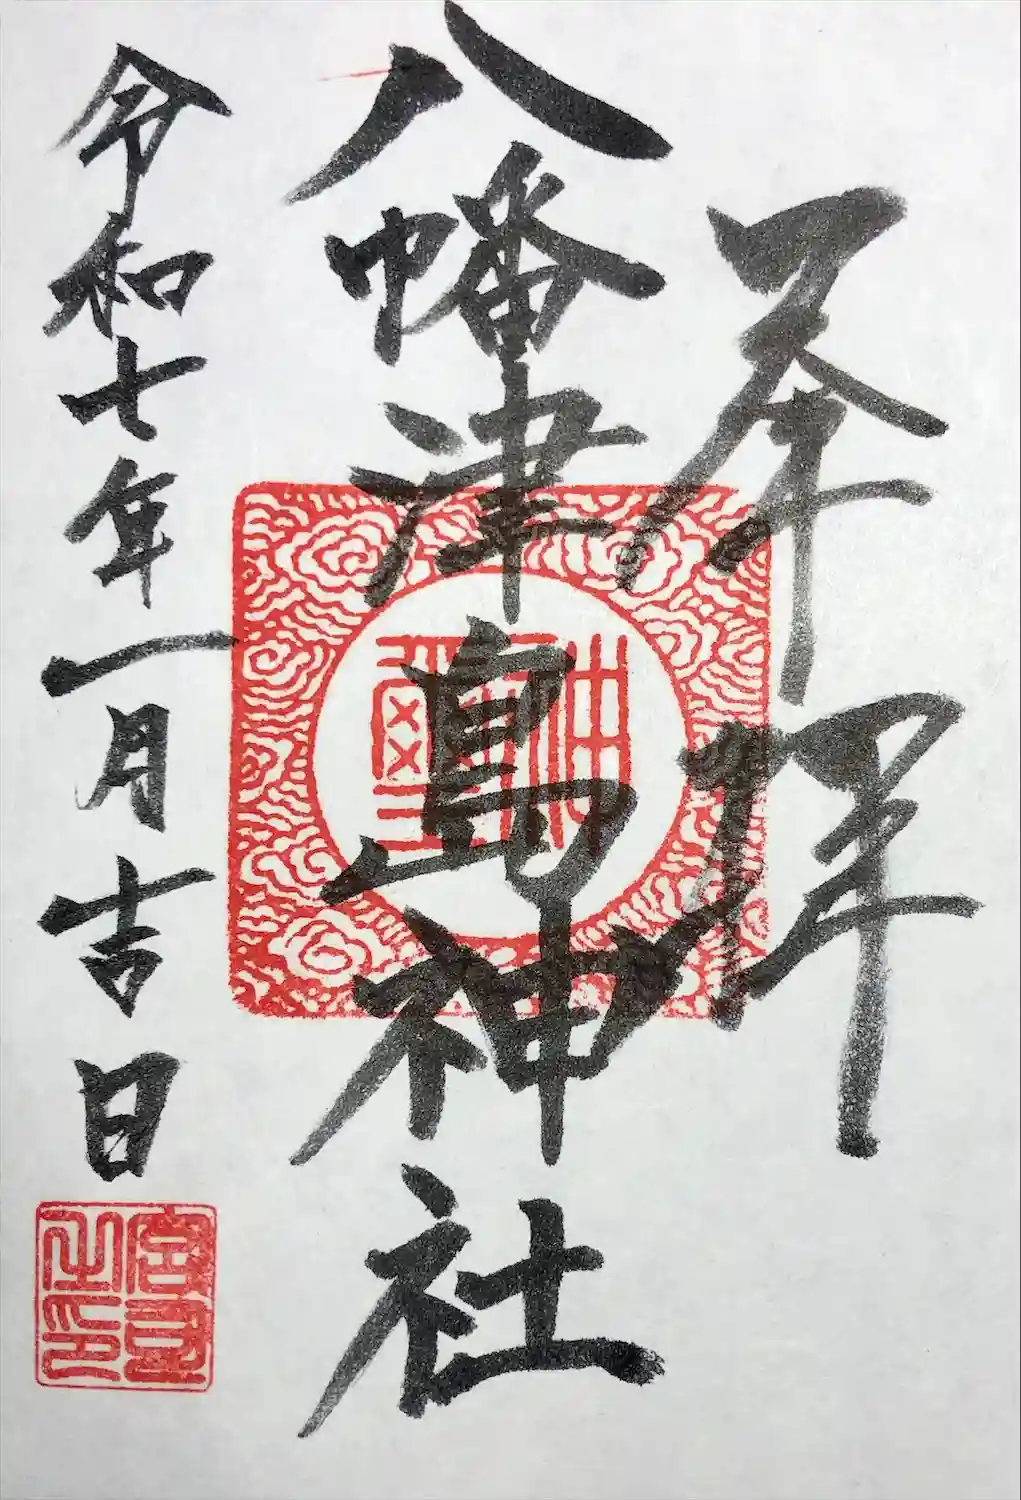 奉拝
八幡津島神社
令和七年一月吉日
宮司之印